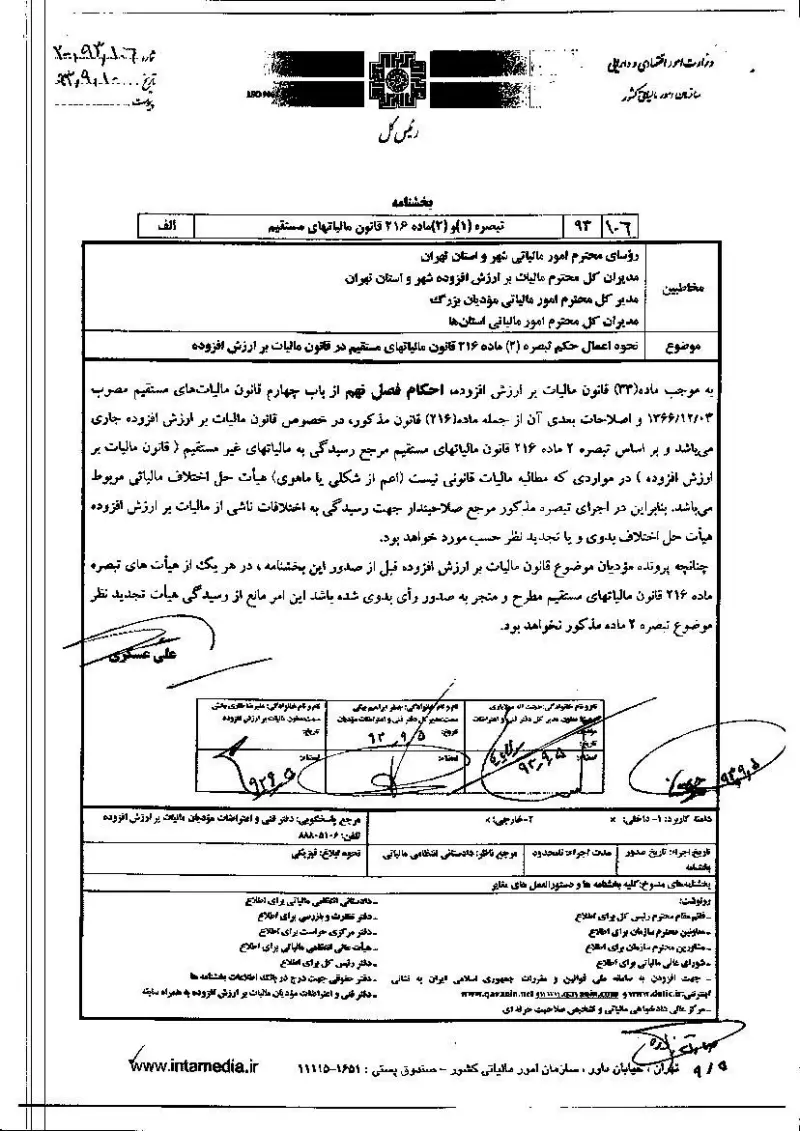 شماره: ۲۰۰،۹۳،۱۰۶
تاریخ: ۹۳،۹،۱۰
پیوست:
وزارت امور اقتصادی و دارایی
سازمان امور مالیاتی کشور
رئیس کل
بخشنامه
۱۰۶ ۹۳ تبصره (۱)و (۲)ماده ۲۱۶ قانون مالیاتهای مستقیم الف
مخاطبین
رؤسای محترم امور مالیاتی شهر و استان تهران
مدیران کل محترم مالیات بر ارزش افزوده شهر و استان تهران
مدیر کل محترم امور مالیاتی مؤدیان بزرگ
مدیران کل محترم امور مالیاتی استان‌ها
موضوع نحوه اعمال حکم تبصره (۲) ماده ۲۱۶ قانون مالیاتهای مستقیم در قانون مالیات بر ارزش افزوده
به موجب ماده(۳۳) قانون مالیات بر ارزش افزوده، احکام فصل نهم از باب چهارم قانون مالیات‌های مستقیم مصوب
۱۳۶۶/۱۲/۰۳ و اصلاحات بعدی آن از جمله ماده(۲۱۶) قانون مذکور، در خصوص قانون مالیات بر ارزش افزوده جاری
می‌باشد و بر اساس تبصره ۲ ماده ۲۱۶ قانون مالیاتهای مستقیم مرجع رسیدگی به مالیاتهای غیر مستقیم ( قانون مالیات بر
ارزش افزوده ) در مواردی که مطالبه مالیات قانونی نیست (اعم از شکلی یا ماهوی) هیأت حل اختلاف مالیاتی مربوط
می‌باشد. بنابراین در اجرای تبصره مذکور مرجع صلاحیتدار جهت رسیدگی به اختلافات ناشی از مالیات بر ارزش افزوده
هیأت حل اختلاف بدوی و یا تجدید نظر حسب مورد خواهد بود.
چنانچه پرونده مؤدیان موضوع قانون مالیات بر ارزش افزوده قبل از صدور این بخشنامه ، در هر یک از هیأت های تبصره
ماده ۲۱۶ قانون مالیاتهای مستقیم مطرح و منجر به صدور رأی بدوی شده باشد این امر مانع از رسیدگی هیأت تجدید نظر
موضوع تبصره ۲ ماده مذکور نخواهد بود.
علی عسکری
نام و نام خانوادگی:
سمت: معاون مدیر کل دفتر فنی و اعتراضات
تاریخ:
امضاء:
۹۳،۹،۵
نام و نام خانوادگی: جعفر ابراهیم بیگی
سمت: مدیر کل دفتر فنی و اعتراضات مؤدیان
تاریخ: ۹۳،۹،۵
امضاء:
نام و نام خانوادگی: علیرضا
سمت: معاون مالیات بر ارزش افزوده
تاریخ:
امضاء:
۹۳،۹،۵
۹۳،۹،۵
دامنه کاربرد: ۱- داخلی: × ۲-خارجی: ×
مرجع پاسخگویی: دفتر فنی و اعتراضات مؤدیان مالیات بر ارزش افزوده
تلفن: ۸۸۸۰۵۱۰۶
تاریخ اجراء: تاریخ صدور بخشنامه
مدت اجراء: نامحدود
مرجع ناظر: دادستانی انتظامی مالیاتی
نحوه ابلاغ: فیزیکی
بخشنامه‌های منسوخ: کلیه بخشنامه ها و دستورالعمل های مغایر
رونوشت:
-قائم مقام محترم رئیس کل برای اطلاع
-معاونین محترم سازمان برای اطلاع
-مشاورین محترم سازمان برای اطلاع
-شورای عالی مالیاتی برای اطلاع
- جهت افزودن به سامانه ملی قوانین و مقررات جمهوری اسلامی ایران به نشانی
اینترنتی www.dolic.ir و www.qavanin.com و www.qavanin.net
-مرکز عالی دادخواهی مالیاتی و تشخیص صلاحیت حرفه ای
-دادستانی انتظامی مالیاتی برای اطلاع
-دفتر نظارت و بازرسی برای اطلاع
-دفتر مرکزی حراست برای اطلاع
-هیأت عالی انتظامی مالیاتی برای اطلاع
-دفتر رئیس کل برای اطلاع
-دفتر حقوقی جهت درج در بانک اطلاعات بخشنامه ها
-دفتر فنی و اعتراضات مؤدیان مالیات بر ارزش افزوده به همراه سابقه
۹/۵
تهران ، خیابان داور ، سازمان امور مالیاتی کشور – صندوق پستی : ۱۶۵۱-۱۱۱۱۵
www.intamedia.ir